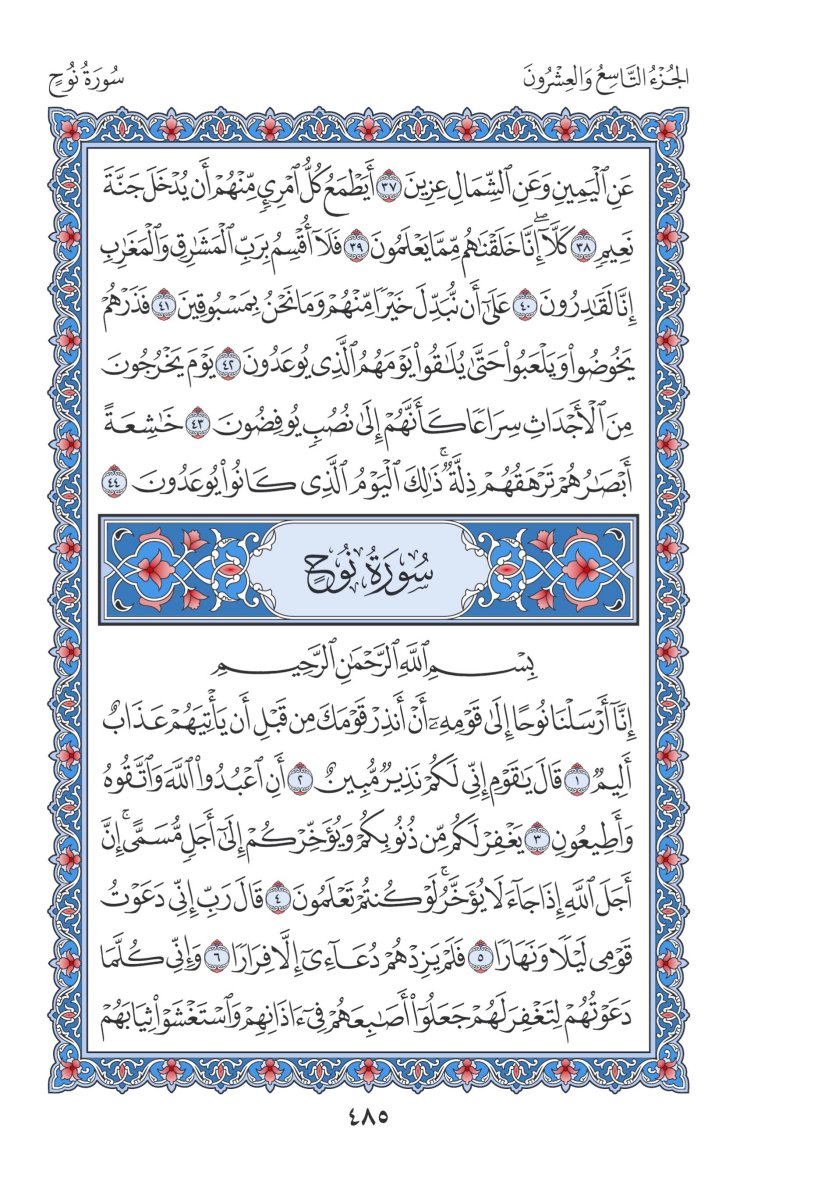 الجُزْءُ التَّاسِعُ وَالعِشْرُونَ سُورَةُ نُوحٍ
عَنِ ٱلۡيَمِينِ وَعَنِ ٱلشِّمَالِ عِزِينَ ٣٧ أَيَطۡمَعُ كُلُّ ٱمۡرِيٕٖ مِّنۡهُمۡ أَن يُدۡخَلَ جَنَّةَ
نَعِيمٖ ٣٨ كَلَّآۖ إِنَّا خَلَقۡنَٰهُم مِّمَّا يَعۡلَمُونَ ٣٩ فَلَآ أُقۡسِمُ بِرَبِّ ٱلۡمَشَٰرِقِ وَٱلۡمَغَٰرِبِ
إِنَّا لَقَٰدِرُونَ ٤٠ عَلَىٰٓ أَن نُّبَدِّلَ خَيۡرٗا مِّنۡهُمۡ وَمَا نَحۡنُ بِمَسۡبُوقِينَ ٤١ فَذَرۡهُمۡ
يَخُوضُواْ وَيَلۡعَبُواْ حَتَّىٰ يُلَٰقُواْ يَوۡمَهُمُ ٱلَّذِي يُوعَدُونَ ٤٢ يَوۡمَ يَخۡرُجُونَ
مِنَ ٱلۡأَجۡدَاثِ سِرَاعٗا كَأَنَّهُمۡ إِلَىٰ نُصُبٖ يُوفِضُونَ ٤٣ خَٰشِعَةً
أَبۡصَٰرُهُمۡ تَرۡهَقُهُمۡ ذِلَّةٞۚ ذَٰلِكَ ٱلۡيَوۡمُ ٱلَّذِي كَانُواْ يُوعَدُونَ ٤٤
سُورَةُ نُوحٍ
بِسۡمِ ٱللَّهِ ٱلرَّحۡمَٰنِ ٱلرَّحِيمِ
إِنَّآ أَرۡسَلۡنَا نُوحًا إِلَىٰ قَوۡمِهِۦٓ أَنۡ أَنذِرۡ قَوۡمَكَ مِن قَبۡلِ أَن يَأۡتِيَهُمۡ عَذَابٌ
أَلِيمٞ ١ قَالَ يَٰقَوۡمِ إِنِّي لَكُمۡ نَذِيرٞ مُّبِينٌ ٢ أَنِ ٱعۡبُدُواْ ٱللَّهَ وَٱتَّقُوهُ
وَأَطِيعُونِ ٣ يَغۡفِرۡ لَكُم مِّن ذُنُوبِكُمۡ وَيُؤَخِّرۡكُمۡ إِلَىٰٓ أَجَلٖ مُّسَمًّىۚ إِنَّ
أَجَلَ ٱللَّهِ إِذَا جَآءَ لَا يُؤَخَّرُۚ لَوۡ كُنتُمۡ تَعۡلَمُونَ ٤ قَالَ رَبِّ إِنِّي دَعَوۡتُ
قَوۡمِي لَيۡلٗا وَنَهَارٗا ٥ فَلَمۡ يَزِدۡهُمۡ دُعَآءِيٓ إِلَّا فِرَارٗا ٦ وَإِنِّي كُلَّمَا
دَعَوۡتُهُمۡ لِتَغۡفِرَ لَهُمۡ جَعَلُوٓاْ أَصَٰبِعَهُمۡ فِيٓ ءَاذَانِهِمۡ وَٱسۡتَغۡشَوۡاْ ثِيَابَهُمۡ
٤٨٥